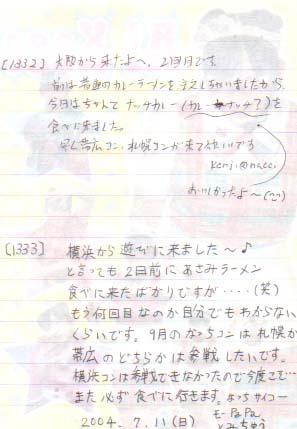 [1332] 大阪から来たよへ、2回目です。
前は普通のカレーラーメンを注文しちゃいましたから、
今日はちゃんとナッチカレー(カレーナッチ?)を
食べに来ました。
早く帯広コン、札幌コンが来てほしいです
kenji@nacci
おいしかったよ〜(^^)
[1333] 横浜から遊びに来ました〜♪
と言っても2回前にあさみラーメン
食べに来たばかりですが・・・・(笑)
もう何回目なのか自分でもわからない
くらいです。9月のなっちコンは札幌か
帯広のどちらかは参戦したいです。
横浜コンは参戦できなかったので今度こそ…
また必ず食べに行きます。なっちサイコー
モーパパ、
2004. 7. 11 (日) とみちゅう